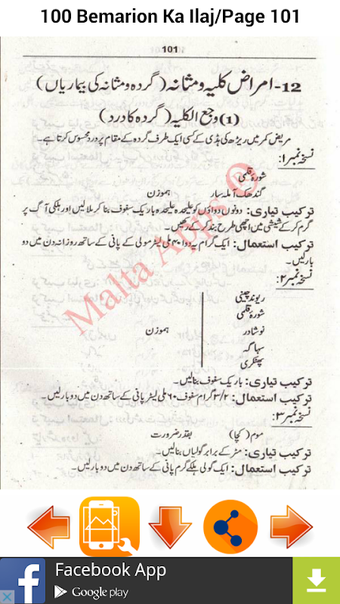 100 Bemarion Ka Ilaj/Page 101
101
12- امراض کلیہ و مثانہ (گردہ و مثانہ کی بیماریاں)
(1) وجع الکلیہ (گردہ کا درد)
مریض کمر میں ریڑھ کی ہڈی کے کسی ایک طرف گردہ کے مقام پر درد محسوس کرتا ہے۔
نسخہ نمبر ۱:
شورہ قلمی
گندھک آملہ سار ہموزن
ترکیب تیاری: دونوں دواؤں کو علیحدہ علیحدہ باریک سفوف بنا کر ملالیں اور ہلکی آگ پر
گرم کر کے شیشی میں اچھی طرح بند کر رکھیں۔
ترکیب استعمال: ایک گرام یہ دوا ۳۰ ملی لیٹر مولی کے پانی کے ساتھ روزانہ دن میں دو
بار لیں۔
نسخہ نمبر ۲:
ریوند چینی
شورہ قلمی
نوشادر ہموزن
سہاگہ
پھٹکری
ترکیب تیاری: باریک سفوف بنالیں۔
ترکیب استعمال: ۳/۲ گرام سفوف ۶۰ ملی لیٹر پانی کے ساتھ دن میں دو بار لیں۔
نسخہ نمبر ۳:
موم (کچا) بقدر ضرورت
ترکیب تیاری: مٹر کے برابر گولیاں بنالیں۔
ترکیب استعمال: ایک گولی ہلکے گرم پانی کے ساتھ دن میں دو بار لیں۔
Malta Apps ®
Facebook App
Google play